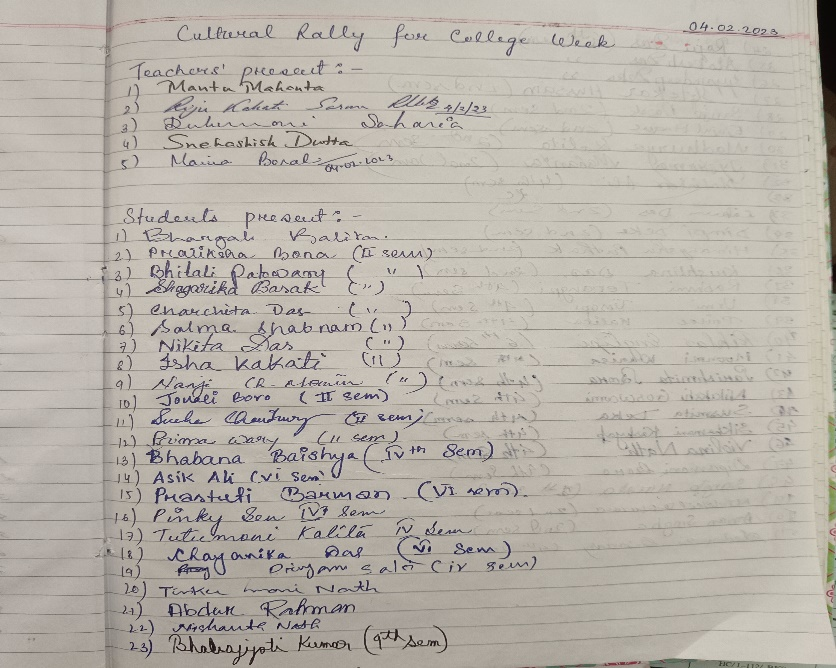 04.02.2023
Cultural Rally for College Week
Teachers' present :-
1) Mantu Mahanta
2) Riju Kakati Saran 4/2/23
3) Saharia
4) Snehashish Dutta
5) Maina Boral 04.02.2023
Students present :-
1) Bhangali Kalita.
2) Pratiksha Bona (II sem)
3) Bhitali Patowary ( " )
4) Shagarika Basak ( " )
5) Charchita Das ( " )
6) Salma Shabnam ( " )
7) Nikita Das ( " )
8) Isha Kakati ( " )
9) ( " )
10) Jonali Boro ( II sem)
11) Choudhury (II sem)
12) Prima Wary (II sem)
13) Bhabana Baishya ( IVth Sem)
14) Asik Ali (VI sem)
15) Prastuti Barman (VI sem).
16) Pinky Sen Sem
17) Kalita IV Sem
18) Chayanika Das (VI Sem)
19) (iv sem)
20) Nath
21) Abdur Rahman
22) Nishanta Nath
23) Kumar (4th Sem)